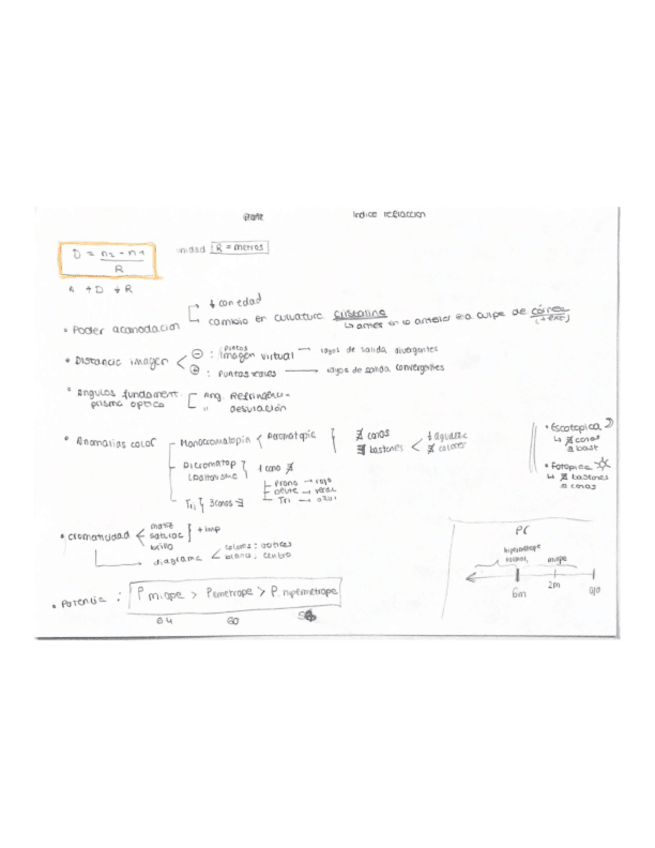 Indice refracción
D = n2 - n1 / R
unidad R = metros
↑D ↓R
• Poder acomodación
→ ↓ con edad
→ cambio en curvatura cristalino
↳ antes en lo anterior era culpa de córnea
• Distancia imagen
⊖ : puntos imagen virtual → rayos de salida divergentes
⊕ : puntos reales → rayos de salida convergentes
• Angulos fundament. prisma optico
Ang. Refringen-
" desviación
• Anomalías color
Monocromatopia
∄ conos
∃ bastones
↓ agudeza
∄ colores
Dicromatop
(Daltonismo
1 cono ∄
Prota → rojo
Deute → verde
Tri → azul
Tri } 3 conos ∃
• Escotopica
↳ ∄ conos
∃ bast
• Fotopica
↳ ∄ bastones
∃ conos
• cromaticidad
matiz
saturac
brillo
} + imp
→ diagrama
colores: vértices
blanco: centro
• Potencia : P miope > P emetrope > P. hipermetrope
64 60
PR
hipermetrope miope
6m 2m ojo